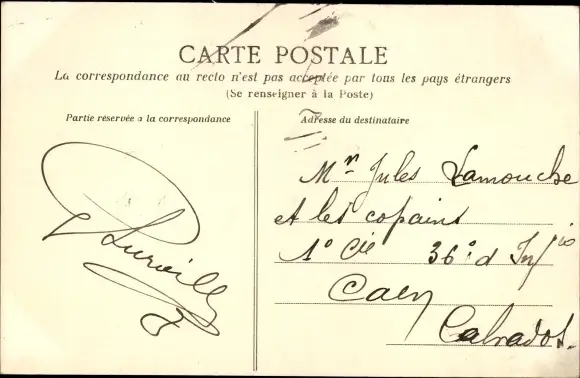 CARTE POSTALE
La correspondance au recto n'est pas acceptée par tous les pays étrangers
(Se renseigner à la Poste)
Partie réservée à la correspondance
Adresse du destinataire
Mr Jules Lamouche
et les copains
1° Cie 36° d'Inf
Caen
Calvados.